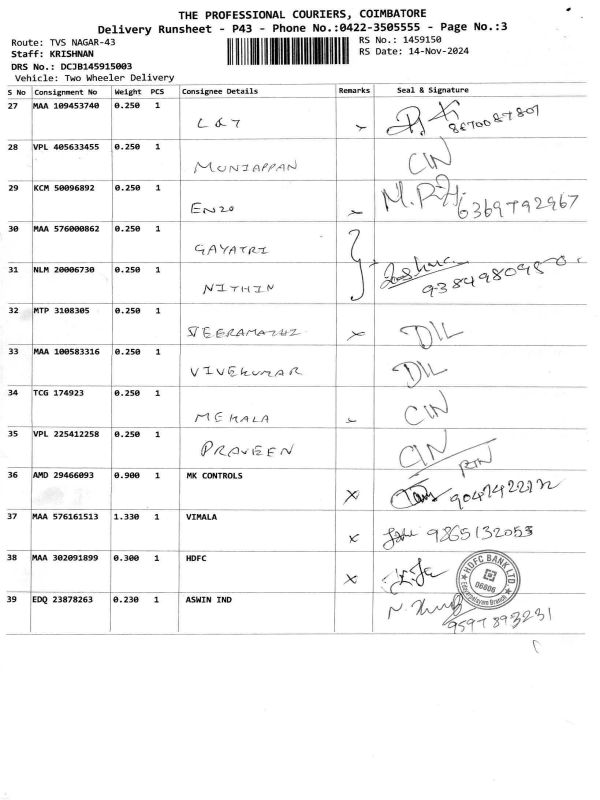 THE PROFESSIONAL COURIERS, COIMBATORE
Delivery Runsheet - P43 - Phone No.:0422-3505555 - Page No.:3
Route: TVS NAGAR-43
RS No.: 1459150
Staff: KRISHNAN
RS Date: 14-Nov-2024
DRS No.: DCJB145915003
Vehicle: Two Wheeler Delivery
S No Consignment No Weight PCS Consignee Details Remarks Seal & Signature
27 MAA 109453740 0.250 1
L & T 8870087807
28 VPL 405633455 0.250 1
MUNIAPPAN CIN
29 KCM 50096892 0.250 1
ENZO 6369792967
30 MAA 576000862 0.250 1
GAYATRI
31 NLM 20006730 0.250 1
NITHIN
32 MTP 3108305 0.250 1
VEERAMATHI DIL
33 MAA 100583316 0.250 1
VIVEKUMAR DIL
34 TCG 174923 0.250 1
MEKALA CIN
35 VPL 225412258 0.250 1
PRAVEEN CIN
RTN
36 AMD 29466093 0.900 1 MK CONTROLS
37 MAA 576161513 1.330 1 VIMALA
9865132053
38 MAA 302091899 0.300 1 HDFC
HDFC BANK LTD
06606
39 EDQ 23878263 0.230 1 ASWIN IND
9597893231